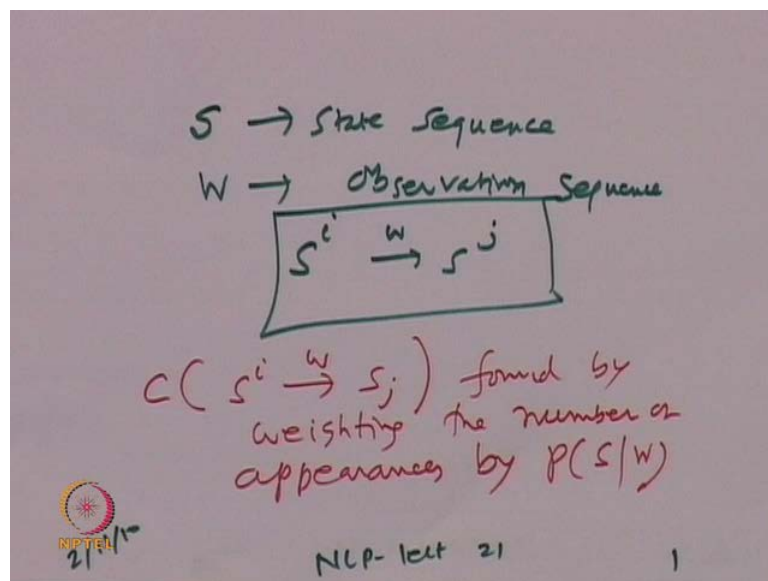 S → State Sequence
W → Observation Sequence
S^i →^w S^j
C( S^i →^w S_j ) found by
weighting the number of
appearances by P(S/W)
NPTEL
NLP- lect 21 1